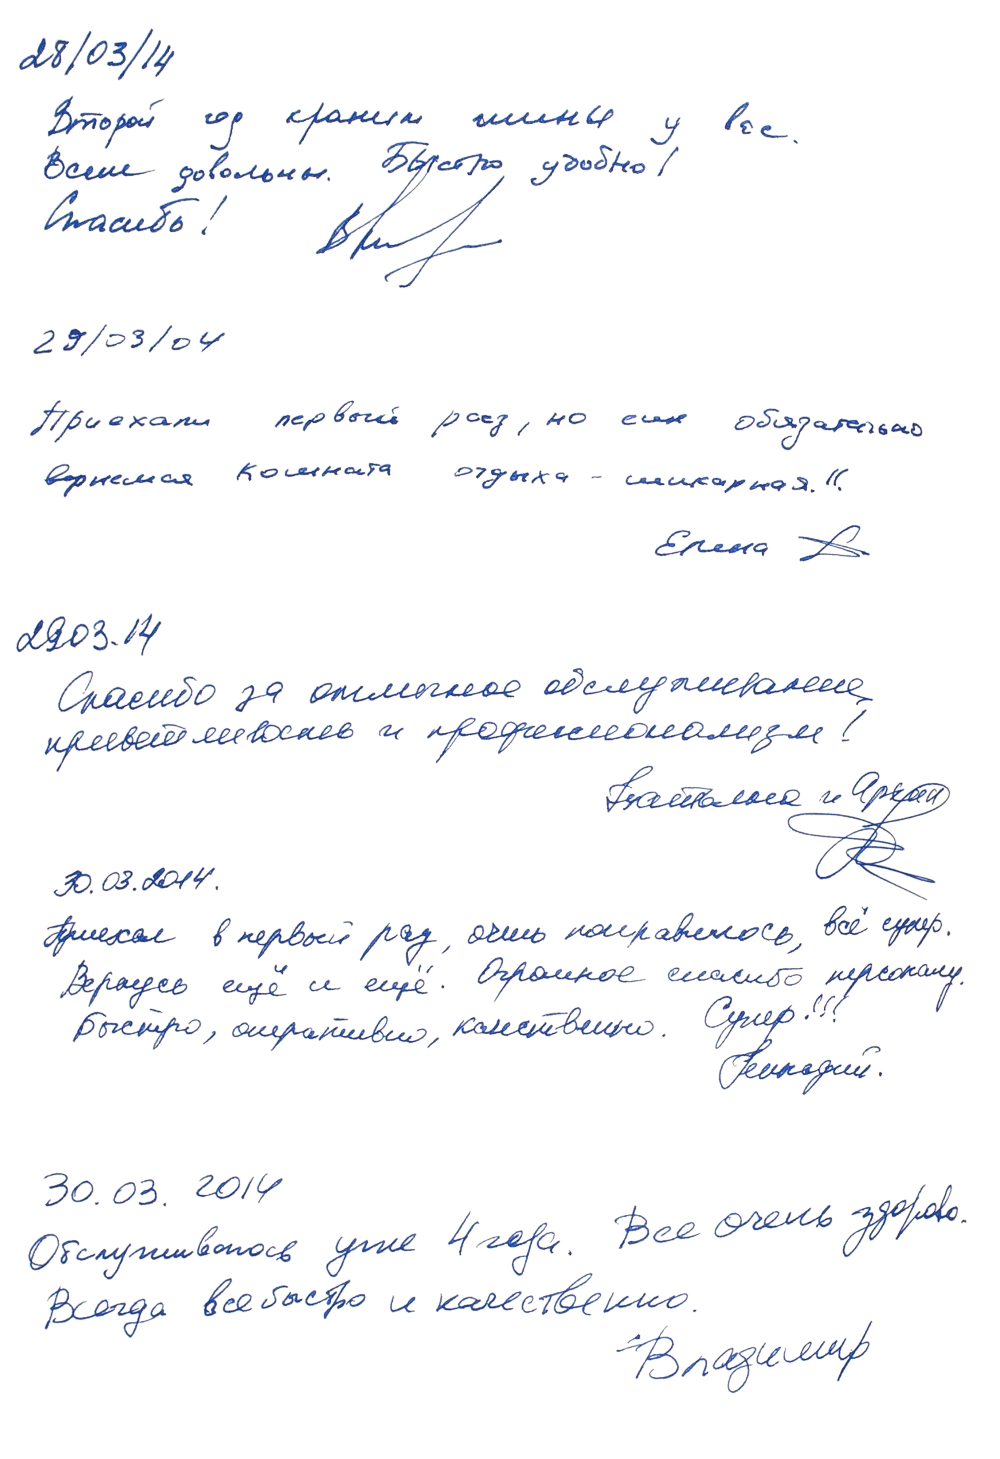 28/03/14
Второй год храним шины у вас.
Всем довольны. Быстро удобно!
Спасибо!
29/03/04
Приехали первый раз, но обязательно
вернемся комната отдыха - шикарная.!!
Елена
29.03.14
Спасибо за отличное обслуживание,
приветливость и профессионализм!
Наталья и
30.03.2014.
Приехал в первый раз, очень понравилось, всё супер.
Вернусь ещё и ещё. Огромное спасибо персоналу.
Быстро, оперативно, качественно. Супер!!!
Геннадий.
30.03. 2014
Обслуживаюсь уже 4 года. Все очень здорово.
Всегда все быстро и качественно.
Владимир